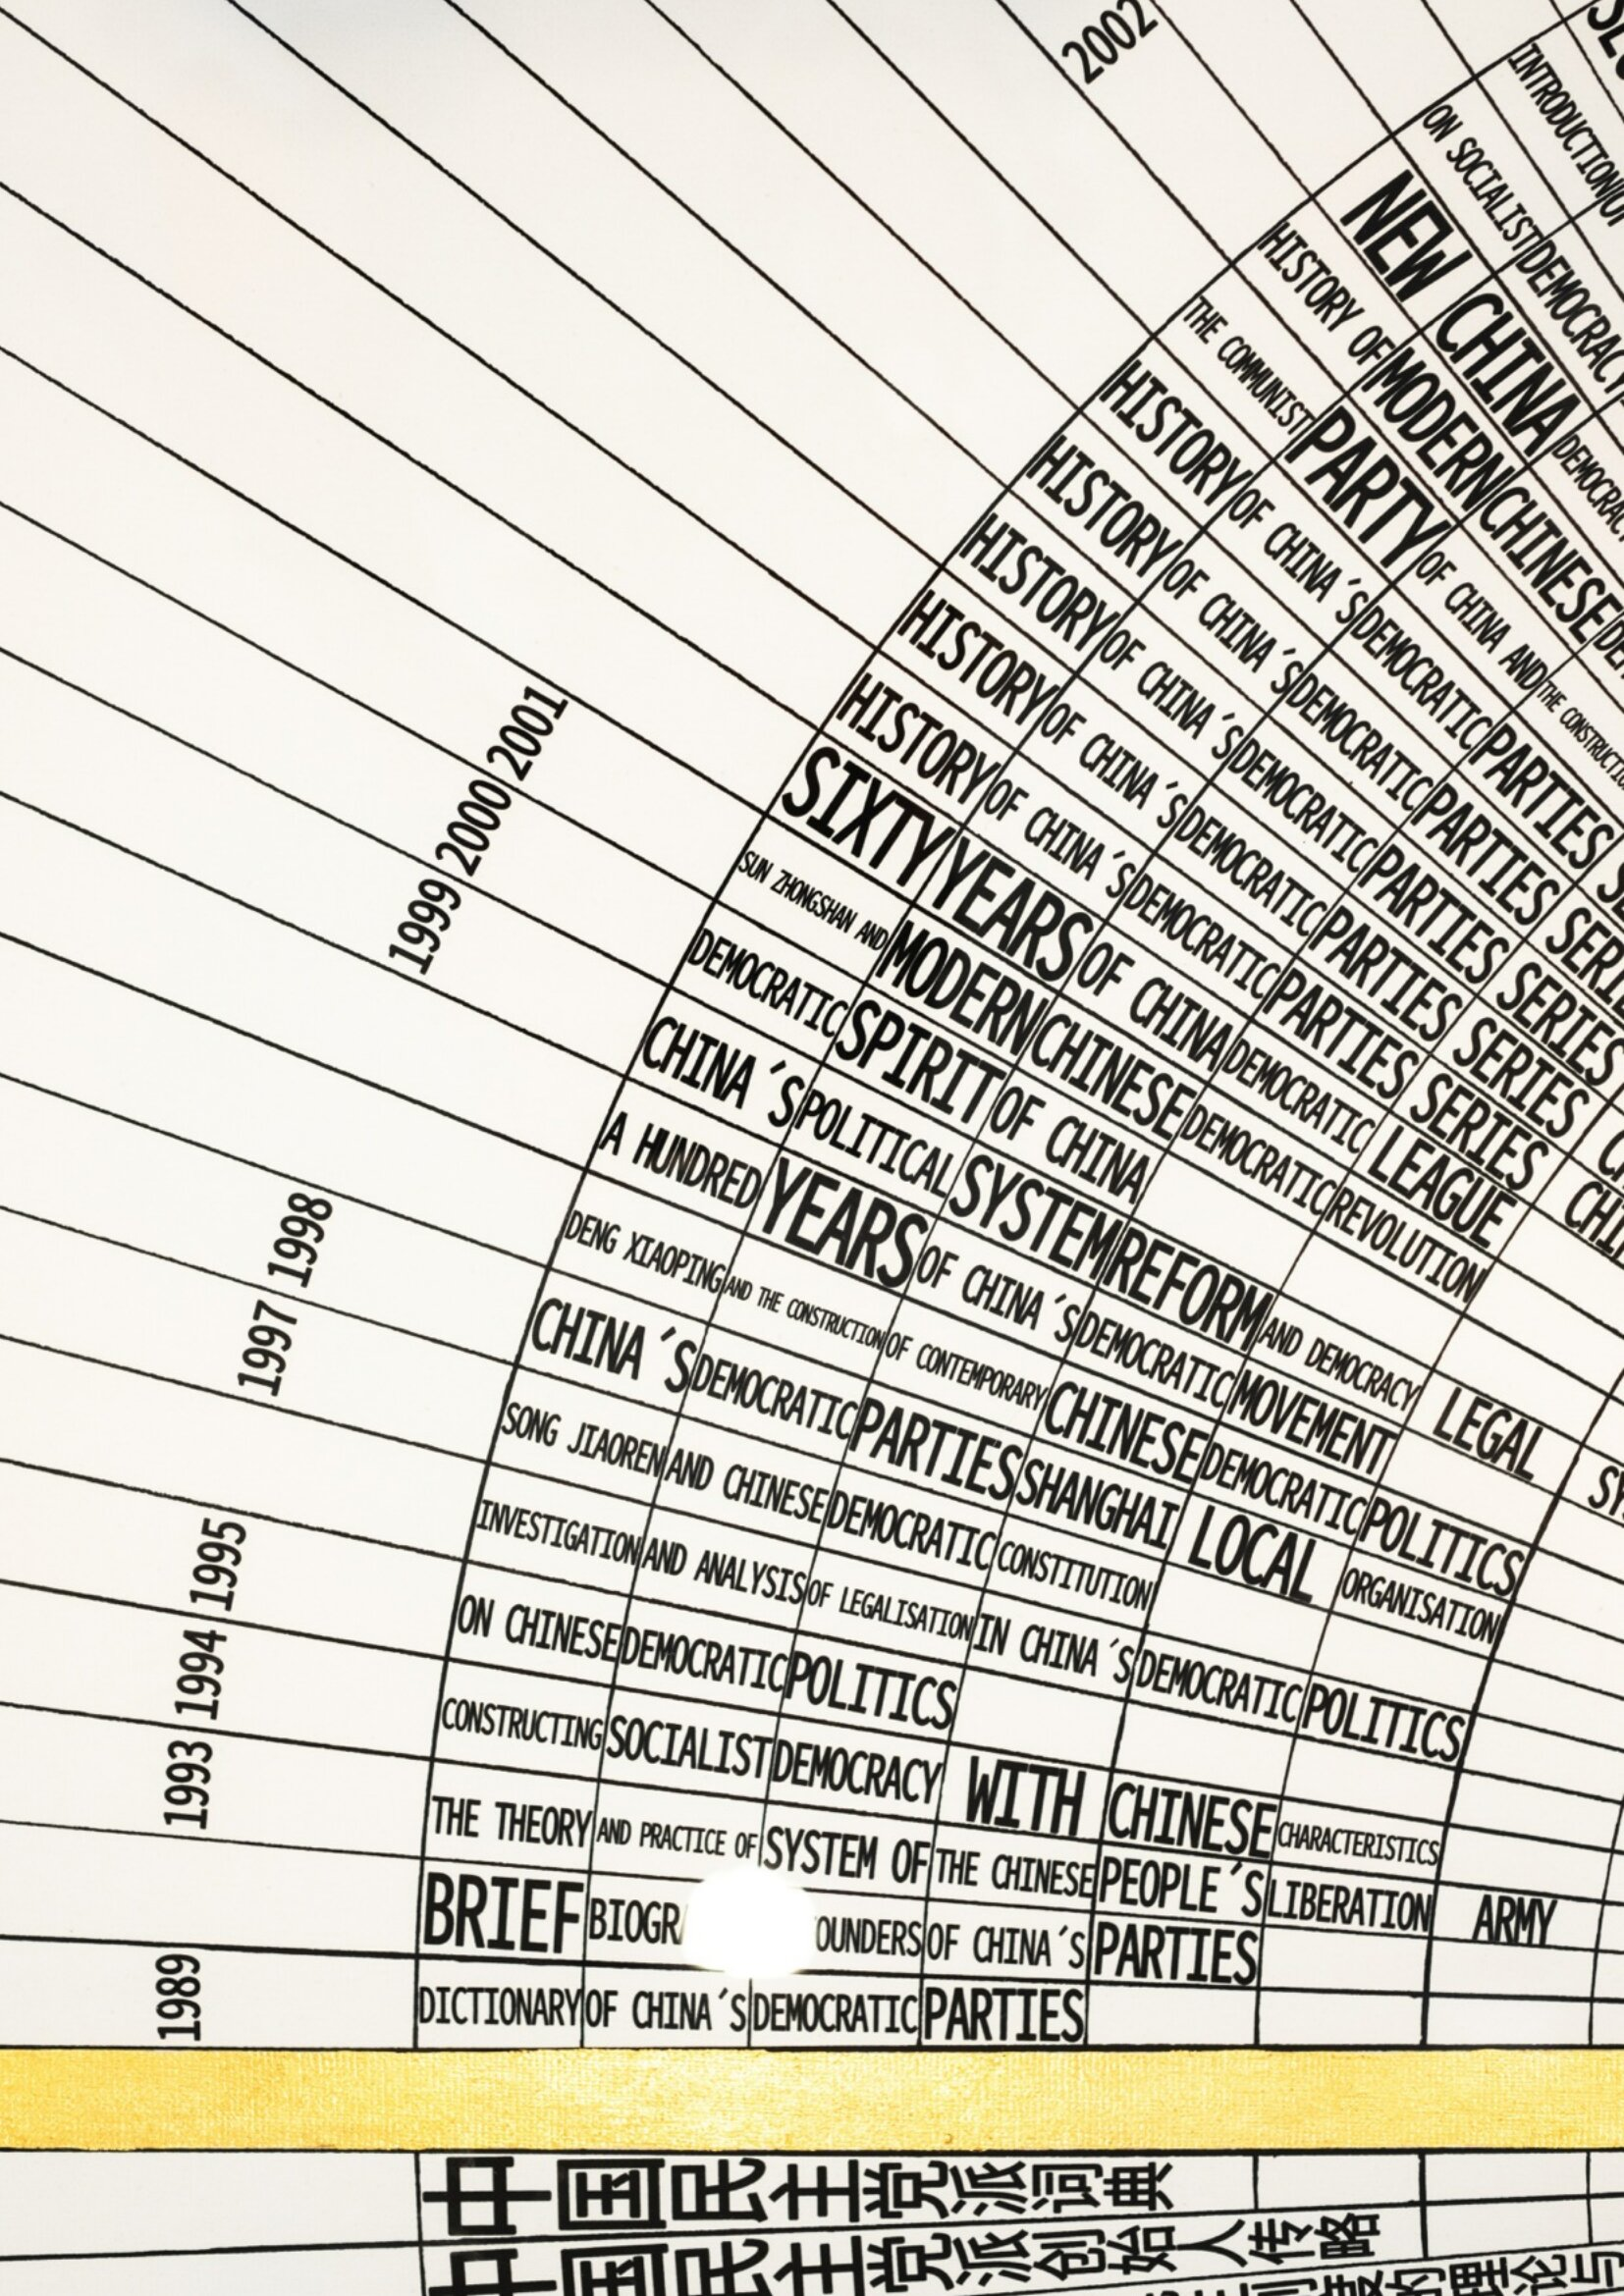 2002
INTRODUCTION
ON SOCIALIST DEMOCRACY
NEW CHINA
HISTORY OF MODERN CHINESE
THE COMMUNIST PARTY OF CHINA AND THE
HISTORY OF CHINA ´S DEMOCRATIC PARTIES
HISTORY OF CHINA ´S DEMOCRATIC PARTIES
HISTORY OF CHINA ´S DEMOCRATIC PARTIES SERIES
HISTORY OF CHINA ´S DEMOCRATIC PARTIES SERIES
HISTORY OF CHINA ´S DEMOCRATIC PARTIES SERIES
2001 SIXTY YEARS OF CHINA DEMOCRATIC LEAGUE
2000 SUN ZHONGSHAN AND MODERN CHINESE DEMOCRATIC REVOLUTION
1999 DEMOCRATIC SPIRIT OF CHINA
CHINA ´S POLITICAL SYSTEM REFORM AND DEMOCRACY LEGAL
A HUNDRED YEARS OF CHINA ´S DEMOCRATIC MOVEMENT
1998 DENG XIAOPING AND THE CONSTRUCTION OF CONTEMPORARY CHINESE DEMOCRATIC POLITICS
1997 CHINA ´S DEMOCRATIC PARTIES SHANGHAI LOCAL ORGANISATION
SONG JIAOREN AND CHINESE DEMOCRATIC CONSTITUTION
1995 INVESTIGATION AND ANALYSIS OF LEGALISATION IN CHINA ´S DEMOCRATIC POLITICS
1994 ON CHINESE DEMOCRATIC POLITICS
1993 CONSTRUCTING SOCIALIST DEMOCRACY WITH CHINESE CHARACTERISTICS
THE THEORY AND PRACTICE OF SYSTEM OF THE CHINESE PEOPLE´S LIBERATION ARMY
BRIEF OF CHINA´S PARTIES
1989 DICTIONARY OF CHINA´S DEMOCRATIC PARTIES
中国民主党派词典
中国民主党派创始人传略
的理论与